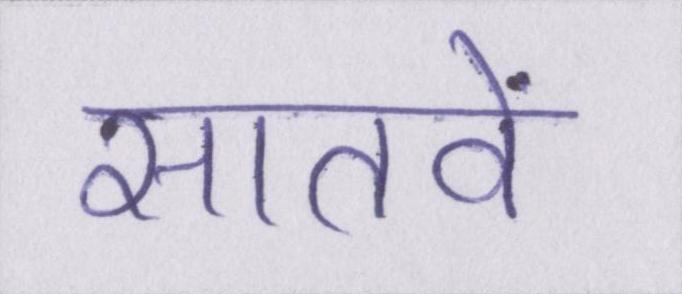 सातवें